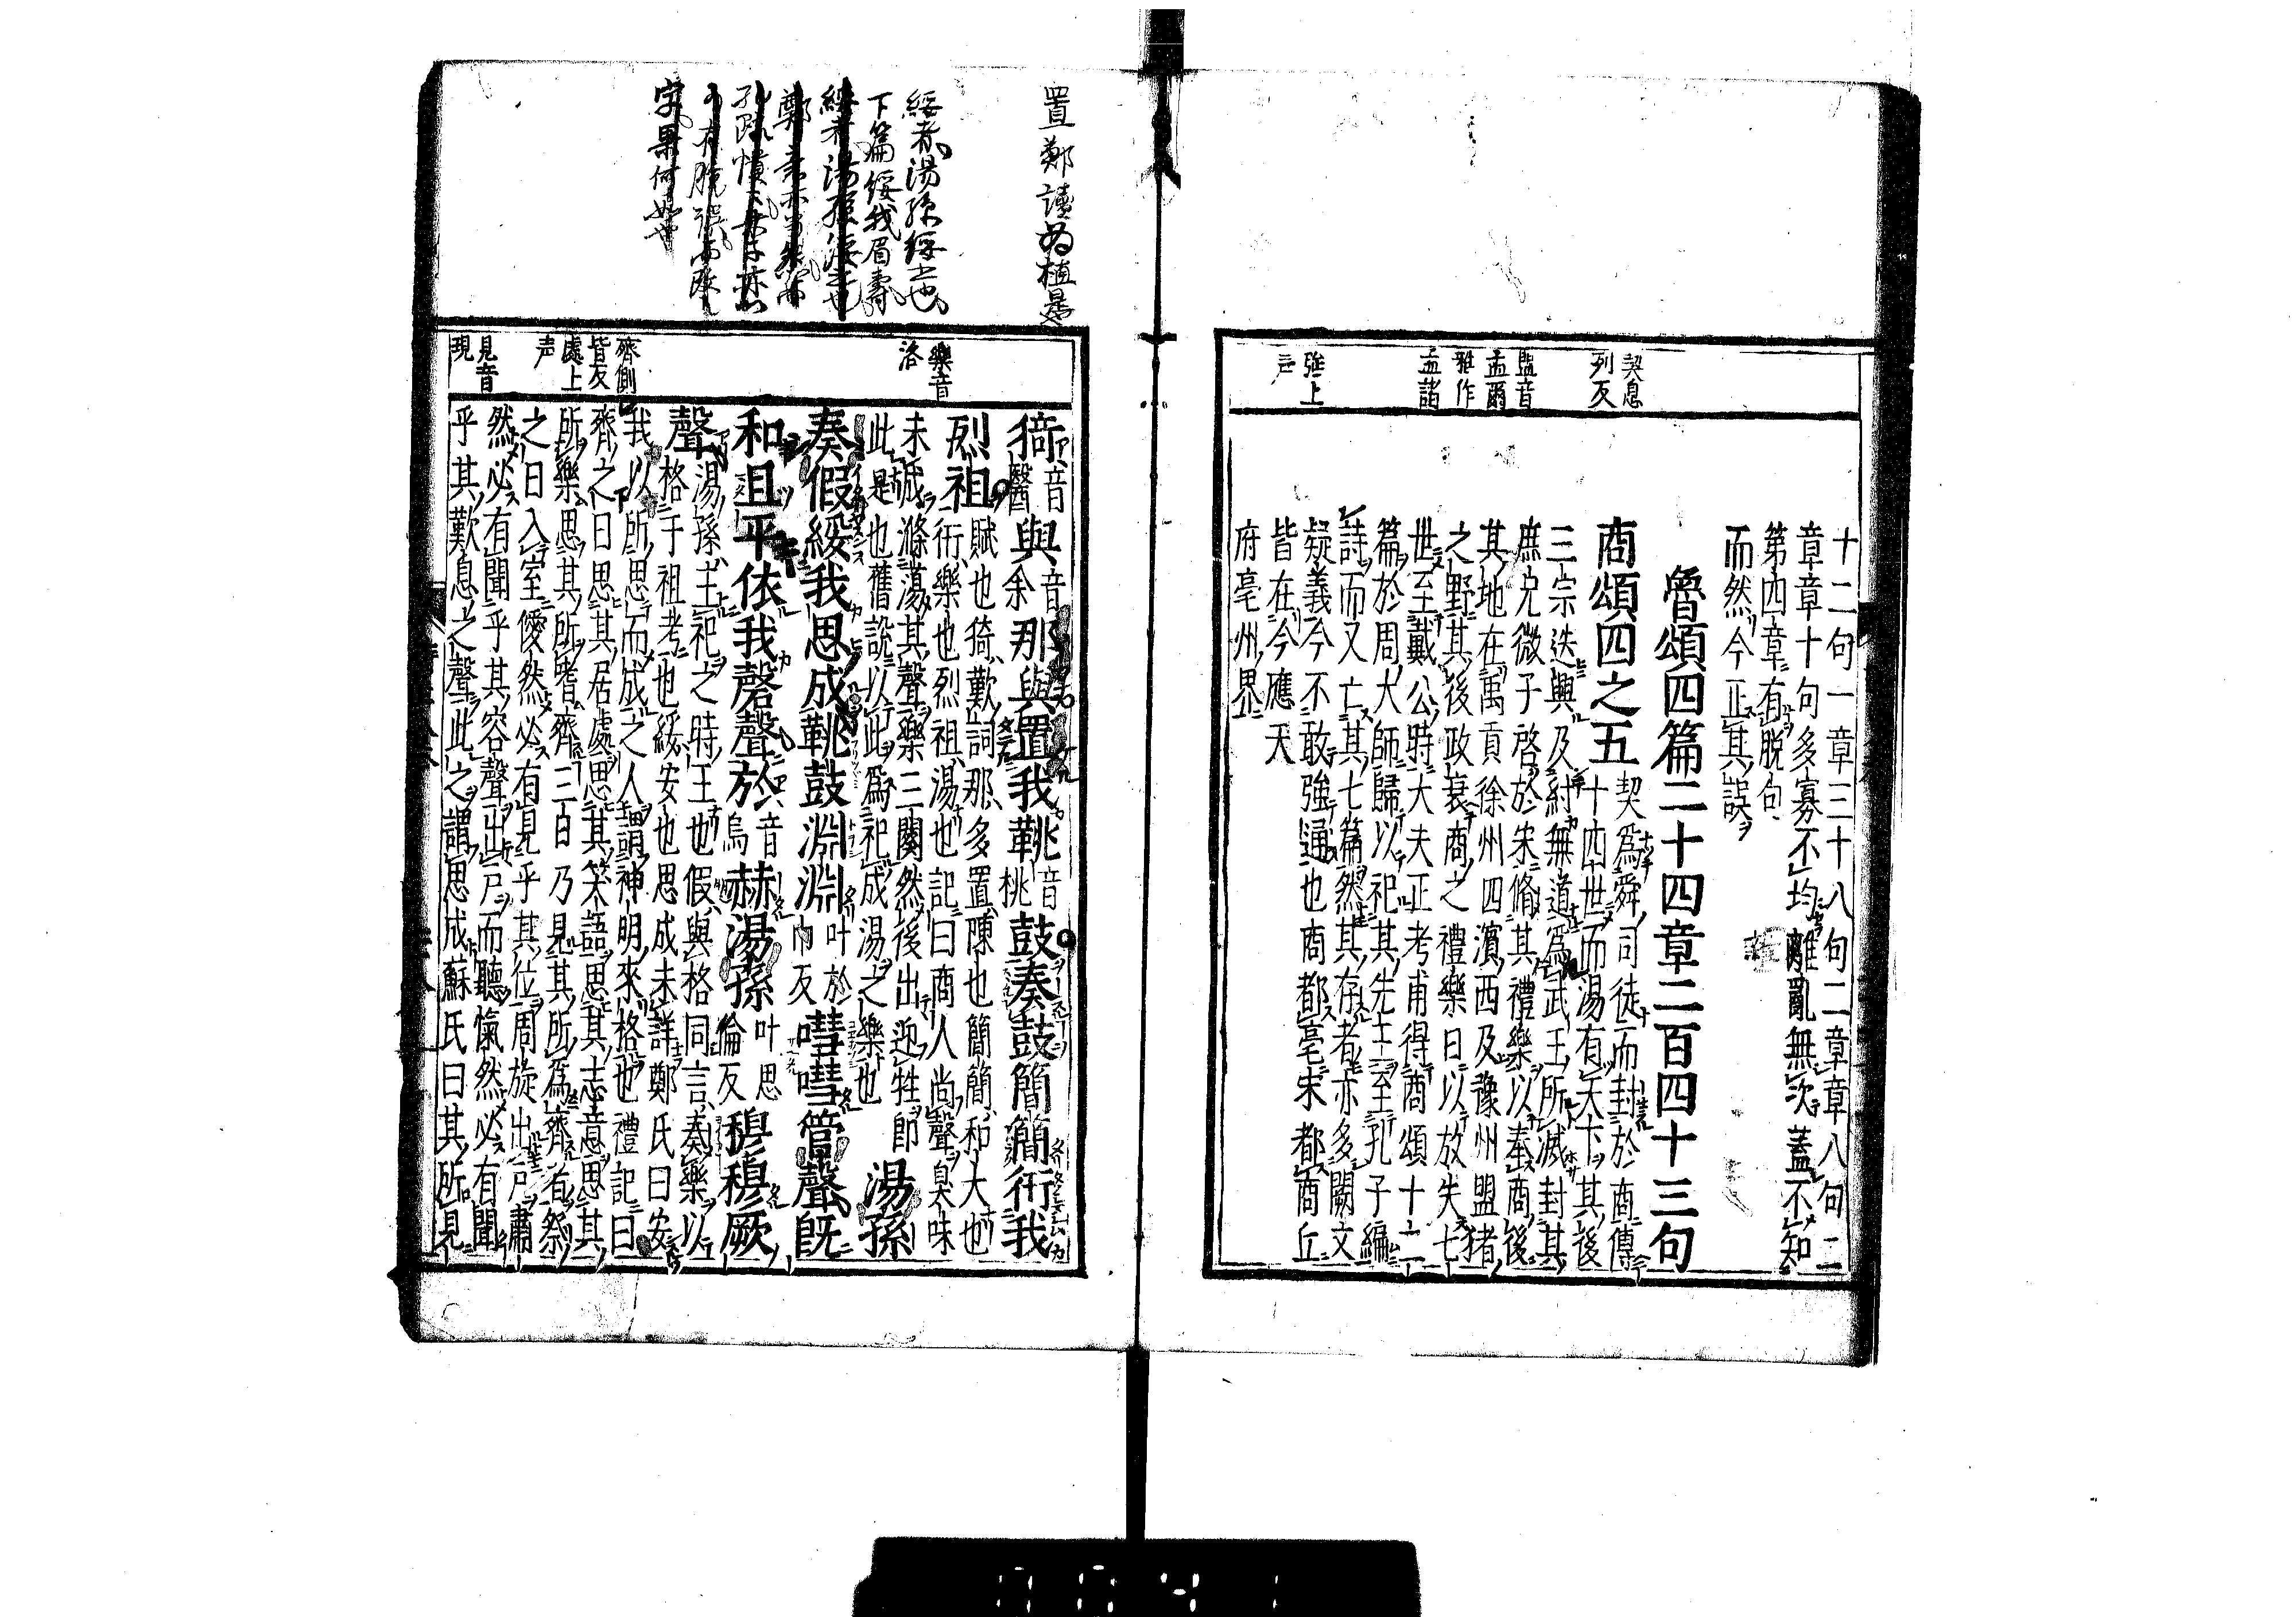 契息
列反
盟音
孟爾
雅作
孟諸
強上
声
十二句一章三十八句二章章八句二
章章十句多寡不均雜亂無次蓋不知
第四章有脫句
而然今正其誤
魯頌四篇二十四章二百四十三句
商頌四之五
契爲舜司徒而封於商傳
十四世而湯有天下其後
三宗迭興及紂無道爲武王所滅封其
庶兄微子啓於宋脩其禮樂以奉商後
其地在禹貢徐州四濱西及豫州盟猪
之野其後政衰商之禮樂日以放失七
世至戴公時大夫正考甫得商頌十二
篇於周大師歸以祀其先王至孔子編
詩而又亡其七篇然其存者亦多闕文
疑義今不敢強通也商都亳宋都商丘
皆在今應天
府亳州界
置鄭讀為植是
綏者湯孫綏之也
下篇綏我眉壽
字果何如也
樂音
洛
齊側
皆反
處上
声
見音
現
猗音醫與音余那與置我鞉音桃鼓奏鼓簡簡衎我
烈祖
賦也猗歎詞那多置陳也簡簡和大也
衎樂也烈祖湯也記曰商人尚聲臭味
未成滌蕩其聲樂三闋然後出迎牲即
此是也舊說以此爲祀成湯之樂也
湯孫
奏假綏我思成鞉鼓淵淵叶於巾反嘒嘒管聲既
和且平依我磬聲於音烏赫湯孫叶思倫反穆穆厥
聲
湯孫主祀之時王也假與格同言奏樂以
格于祖考也綏安也思成未詳鄭氏曰安
我以所思而成之人謂神明來格也禮記曰
齊之日思其居處思其笑語思其志意思其
所樂思其所嗜齊三日乃見其所爲齊者祭
之日入室僾然必有見乎其位周旋出戶肅
然必有聞乎其容聲出戶而聽愾然必有聞
乎其歎息之聲此之謂思成蘇氏曰其所見